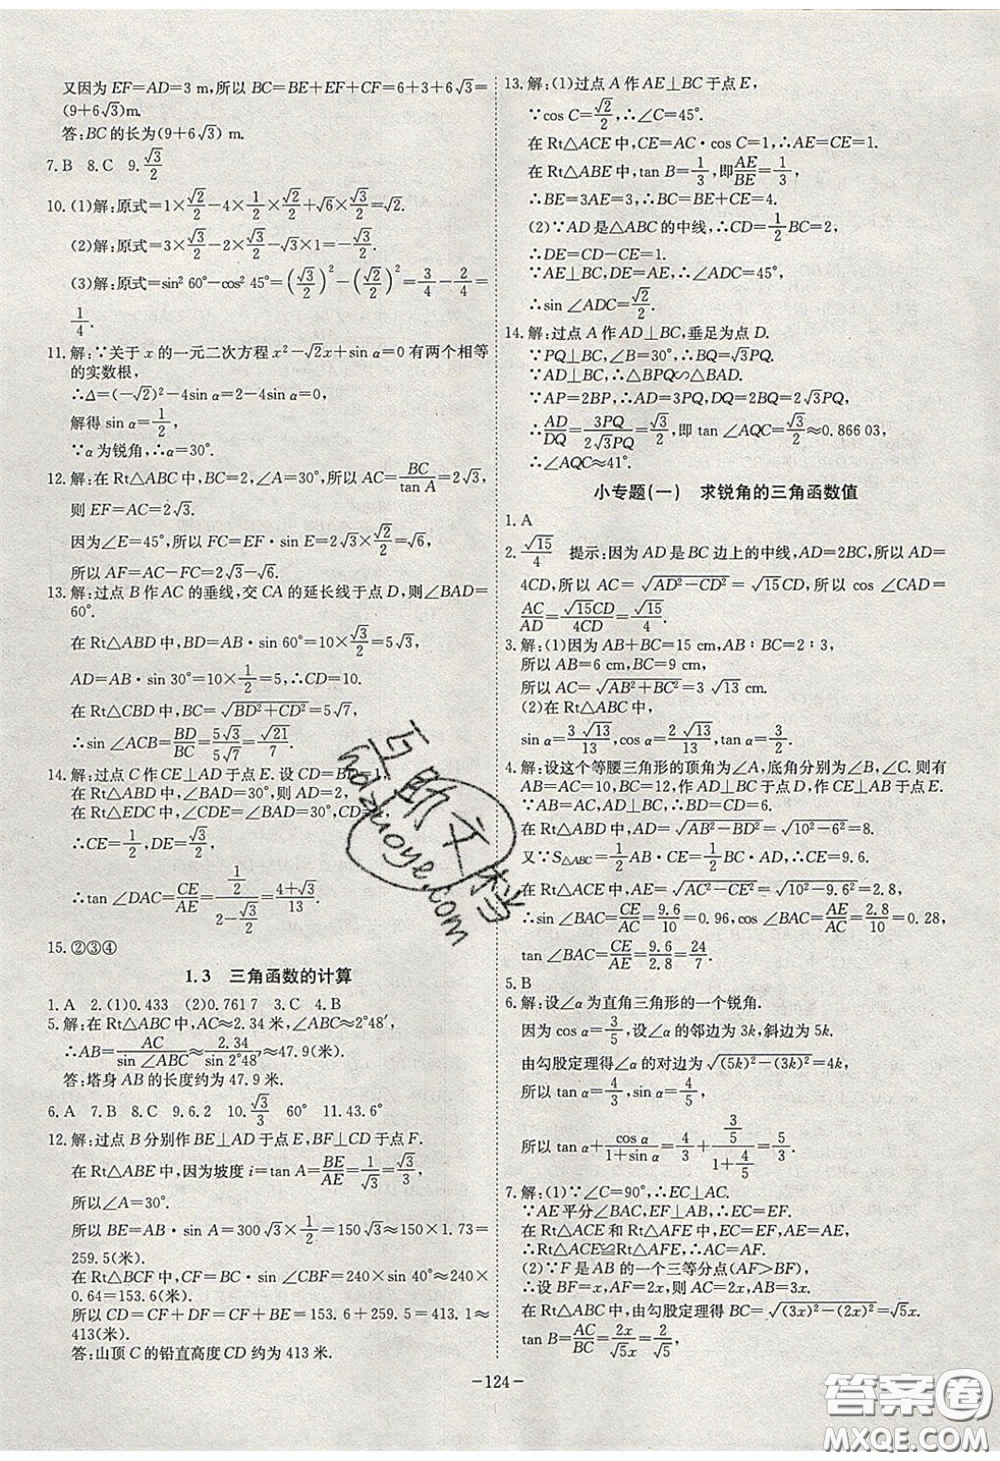 又因为 EF=AD=3 m,所以 BC=BE+EF+CF=6+3+6√3=
(9+6√3)m.
答:BC的长为(9+6√3) m.
7.B 8.C 9.√3/2
10.(1)解:原式=1×√2/2-4×1/2×√2/2+√6×√3/2=√2.
(2)解:原式=3×√3/2-2×√3/2-√3×1=-√3/2.
(3)解:原式=sin² 60°-cos² 45°=(√3/2)²-(√2/2)²=3/4-2/4=
1/4.
11.解:∵关于 x 的一元二次方程 x²-√2x+sin α=0 有两个相等
的实数根,
∴Δ=(-√2)²-4sin α=2-4sin α=0,
解得 sin α=1/2,
∵α为锐角,∴α=30°.
12.解:在 Rt△ABC 中,BC=2,∠A=30°,所以 AC=BC/tan A=2√3,
则 EF=AC=2√3.
因为∠E=45°,所以 FC=EF·sin E=2√3×√2/2=√6,
所以 AF=AC-FC=2√3-√6.
13.解:过点 B 作 AC 的垂线,交 CA 的延长线于点 D,则∠BAD=
60°.
在 Rt△ABD 中,BD=AB·sin 60°=10×√3/2=5√3,
AD=AB·sin 30°=10×1/2=5,∴CD=10.
在 Rt△CBD 中,BC=√(BD²+CD²)=5√7,
∴sin ∠ACB=BD/BC=5√3/5√7=√21/7.
14.解:过点 C 作 CE⊥AD 于点 E.设 CD=BD=1.
在 Rt△ABD 中,∠BAD=30°,则 AD=2,
在 Rt△EDC 中,∠CDE=∠BAD=30°,CD=1,
∴CE=1/2,DE=√3/2,
∴tan ∠DAC=CE/AE=(1/2)/(2-√3/2)=(4+√3)/13.
15.②③④
1.3 三角函数的计算
1.A 2.(1)0.433 (2)0.7617 3.C 4.B
5.解:在 Rt△ABC 中,AC≈2.34 米,∠ABC≈2°48′,
∴AB=AC/sin ∠ABC≈2.34/sin 2°48′≈47.9(米).
答:塔身 AB 的长度约为 47.9 米.
6.A 7.B 8.C 9.6.2 10.√3/3 60° 11.43.6°
12.解:过点 B 分别作 BE⊥AD 于点 E,BF⊥CD 于点 F.
在 Rt△ABE 中,因为坡度 i=tan A=BE/AE=1/√3=√3/3,
所以∠A=30°.
所以 BE=AB·sin A=300√3×1/2=150√3≈150×1.73=
259.5(米).
在 Rt△BCF 中,CF=BC·sin ∠CBF=240×sin 40°≈240×
0.64=153.6(米).
所以 CD=CF+DF=CF+BE=153.6+259.5=413.1≈
413(米).
答:山顶 C 的铅直高度 CD 约为 413 米.
13.解:(1)过点 A 作 AE⊥BC 于点 E,
∵cos C=√2/2,∴∠C=45°.
在 Rt△ACE 中,CE=AC·cos C=1,∴AE=CE=1.
在 Rt△ABE 中,tan B=1/3,即AE/BE=1/3,
∴BE=3AE=3,∴BC=BE+CE=4.
(2)∵AD 是△ABC 的中线,∴CD=1/2BC=2,
∴DE=CD-CE=1.
∵AE⊥BC,DE=AE,∴∠ADC=45°,
∴sin ∠ADC=√2/2.
14.解:过点 A 作 AD⊥BC,垂足为点 D.
∵PQ⊥BC,∠B=30°,∴BQ=√3PQ.
∵AD⊥BC,∴△BPQ∽△BAD.
∵AP=2BP,∴AD=3PQ,DQ=2BQ=2√3PQ,
∴AD/DQ=3PQ/2√3PQ=√3/2,即 tan ∠AQC=√3/2≈0.866 03,
∴∠AQC≈41°.
小专题(一) 求锐角的三角函数值
1.A
2.√15/4 提示:因为 AD 是 BC 边上的中线,AD=2BC,所以 AD=
4CD,所以 AC=√(AD²-CD²)=√15CD,所以 cos ∠CAD=
AC/AD=√15CD/4CD=√15/4.
3.解:(1)因为 AB+BC=15 cm,AB∶BC=2∶3,
所以 AB=6 cm,BC=9 cm.
所以 AC=√(AB²+BC²)=3√13 cm.
(2)在 Rt△ABC 中,
sin α=3√13/13,cos α=2√13/13,tan α=3/2.
4.解:设这个等腰三角形的顶角为∠A,底角分别为∠B,∠C.则有
AB=AC=10,BC=12,作 AD⊥BC 于点 D,作 CE⊥AB 于点 E.
∵AB=AC,AD⊥BC,∴BD=CD=6.
在 Rt△ABD 中,AD=√(AB²-BD²)=√(10²-6²)=8.
又∵S△ABC=1/2AB·CE=1/2BC·AD,∴CE=9.6.
在 Rt△ACE 中,AE=√(AC²-CE²)=√(10²-9.6²)=2.8,
∴sin ∠BAC=CE/AC=9.6/10=0.96,cos ∠BAC=AE/AC=2.8/10=0.28,
tan ∠BAC=CE/AE=9.6/2.8=24/7.
5.B
6.解:设∠α为直角三角形的一个锐角.
因为 cos α=3/5,设∠α的邻边为 3k,斜边为 5k.
由勾股定理得∠α的对边为√((5k)²-(3k)²)=4k,
所以 tan α=4/3,sin α=4/5,
所以 tan α+cos α/(1+sin α)=4/3+(3/5)/(1+4/5)=5/3.
7.解:(1)∵∠C=90°,∴EC⊥AC.
∵AE 平分∠BAC,EF⊥AB,∴EC=EF.
在 Rt△ACE 和 Rt△AFE 中,EC=EF,AE=AE,
∴Rt△ACE≌Rt△AFE,∴AC=AF.
(2)∵F 是 AB 的一个三等分点(AF>BF),
∴设 BF=x,AF=2x,则 AC=2x,AB=3x.
在 Rt△ABC 中,由勾股定理得 BC=√((3x)²-(2x)²)=√5x.
tan B=AC/BC=2x/√5x=2/√5,
-124-
互助文档
hdzuoye.com
答案圈
MXQE.COM